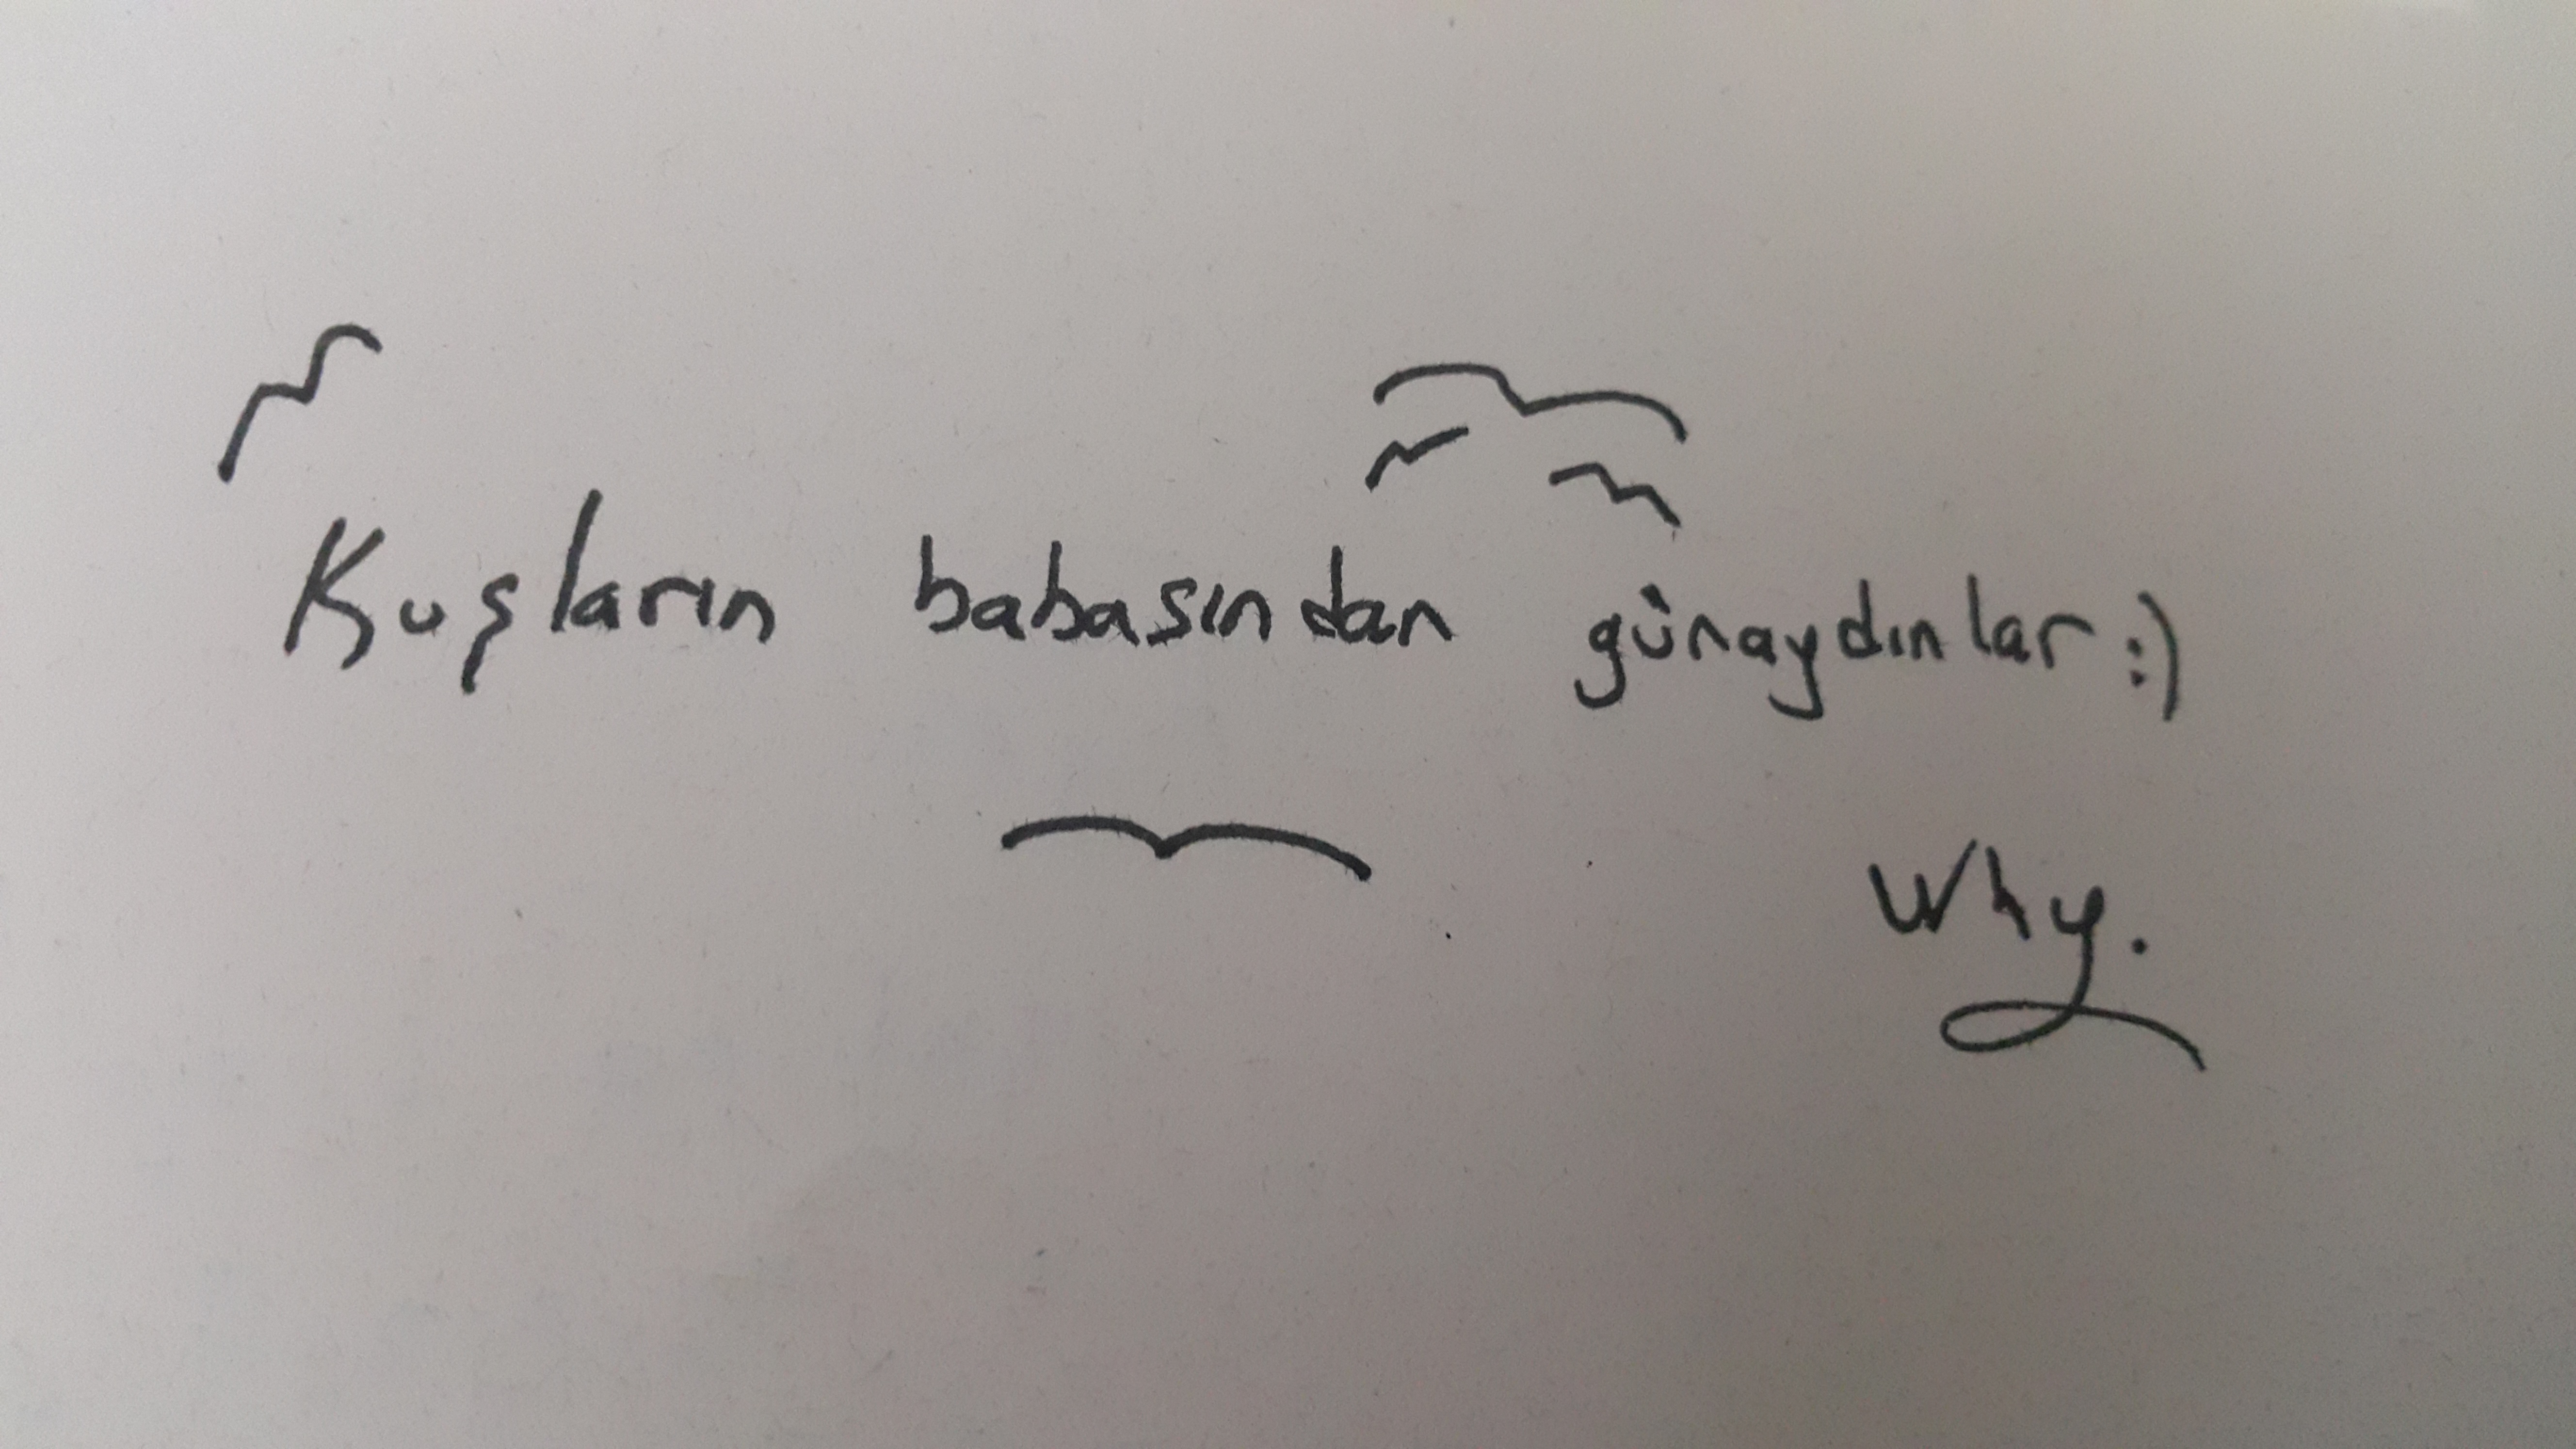 Kuşların babasından günaydınlar :)
Why.